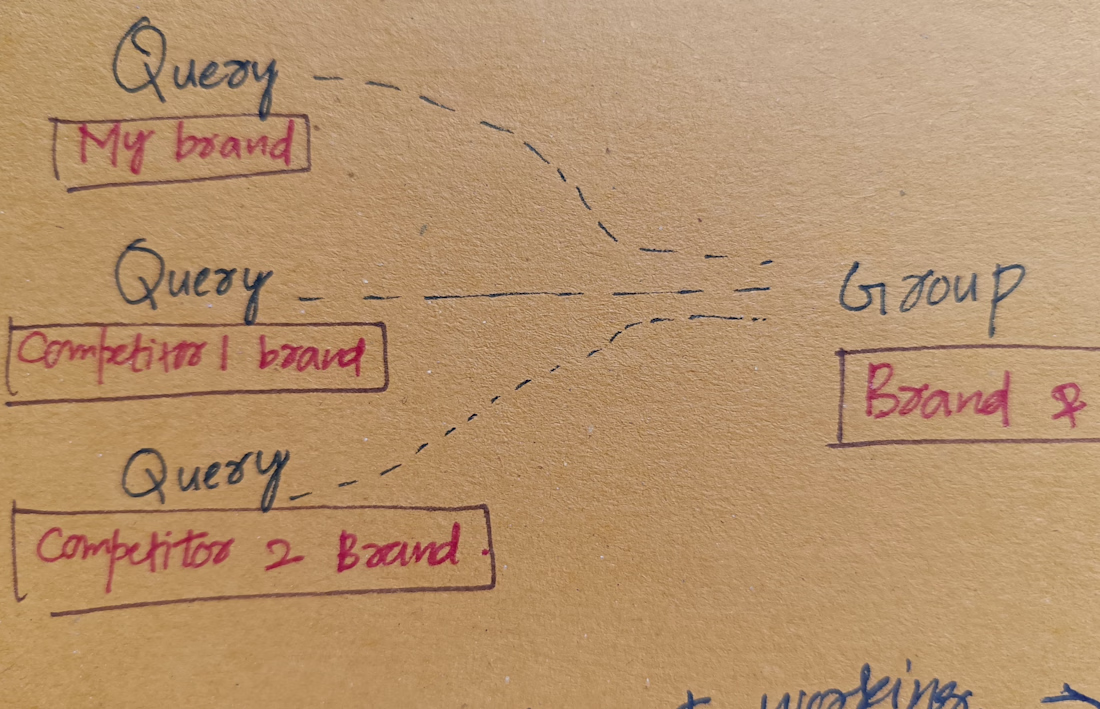 Query
My brand
Query
Competitor 1 brand
Group
Brand &
Query
Competitor 2 Brand.
working →